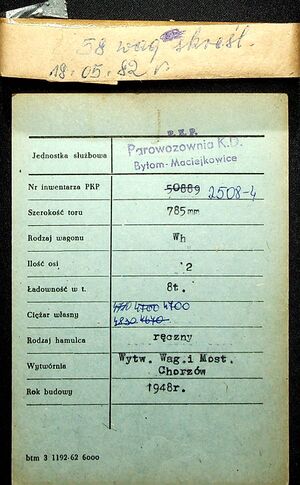 58 wag skreśl.
18.05.82 r.
P.K.P.
Jednostka służbowa Parowozownia K.D.
Bytom-Maciejkowice
Nr inwentarza PKP 50889 2508-4
Szerokość toru 785mm
Rodzaj wagonu Wh
Ilość osi 2
Ładowność w t. 8t.
Ciężar własny 4700 4700
Rodzaj hamulca ręczny
Wytwórnia Wytw. Wag.i Most.
Chorzów
Rok budowy 1948r.
btm 3 1192-62 6000